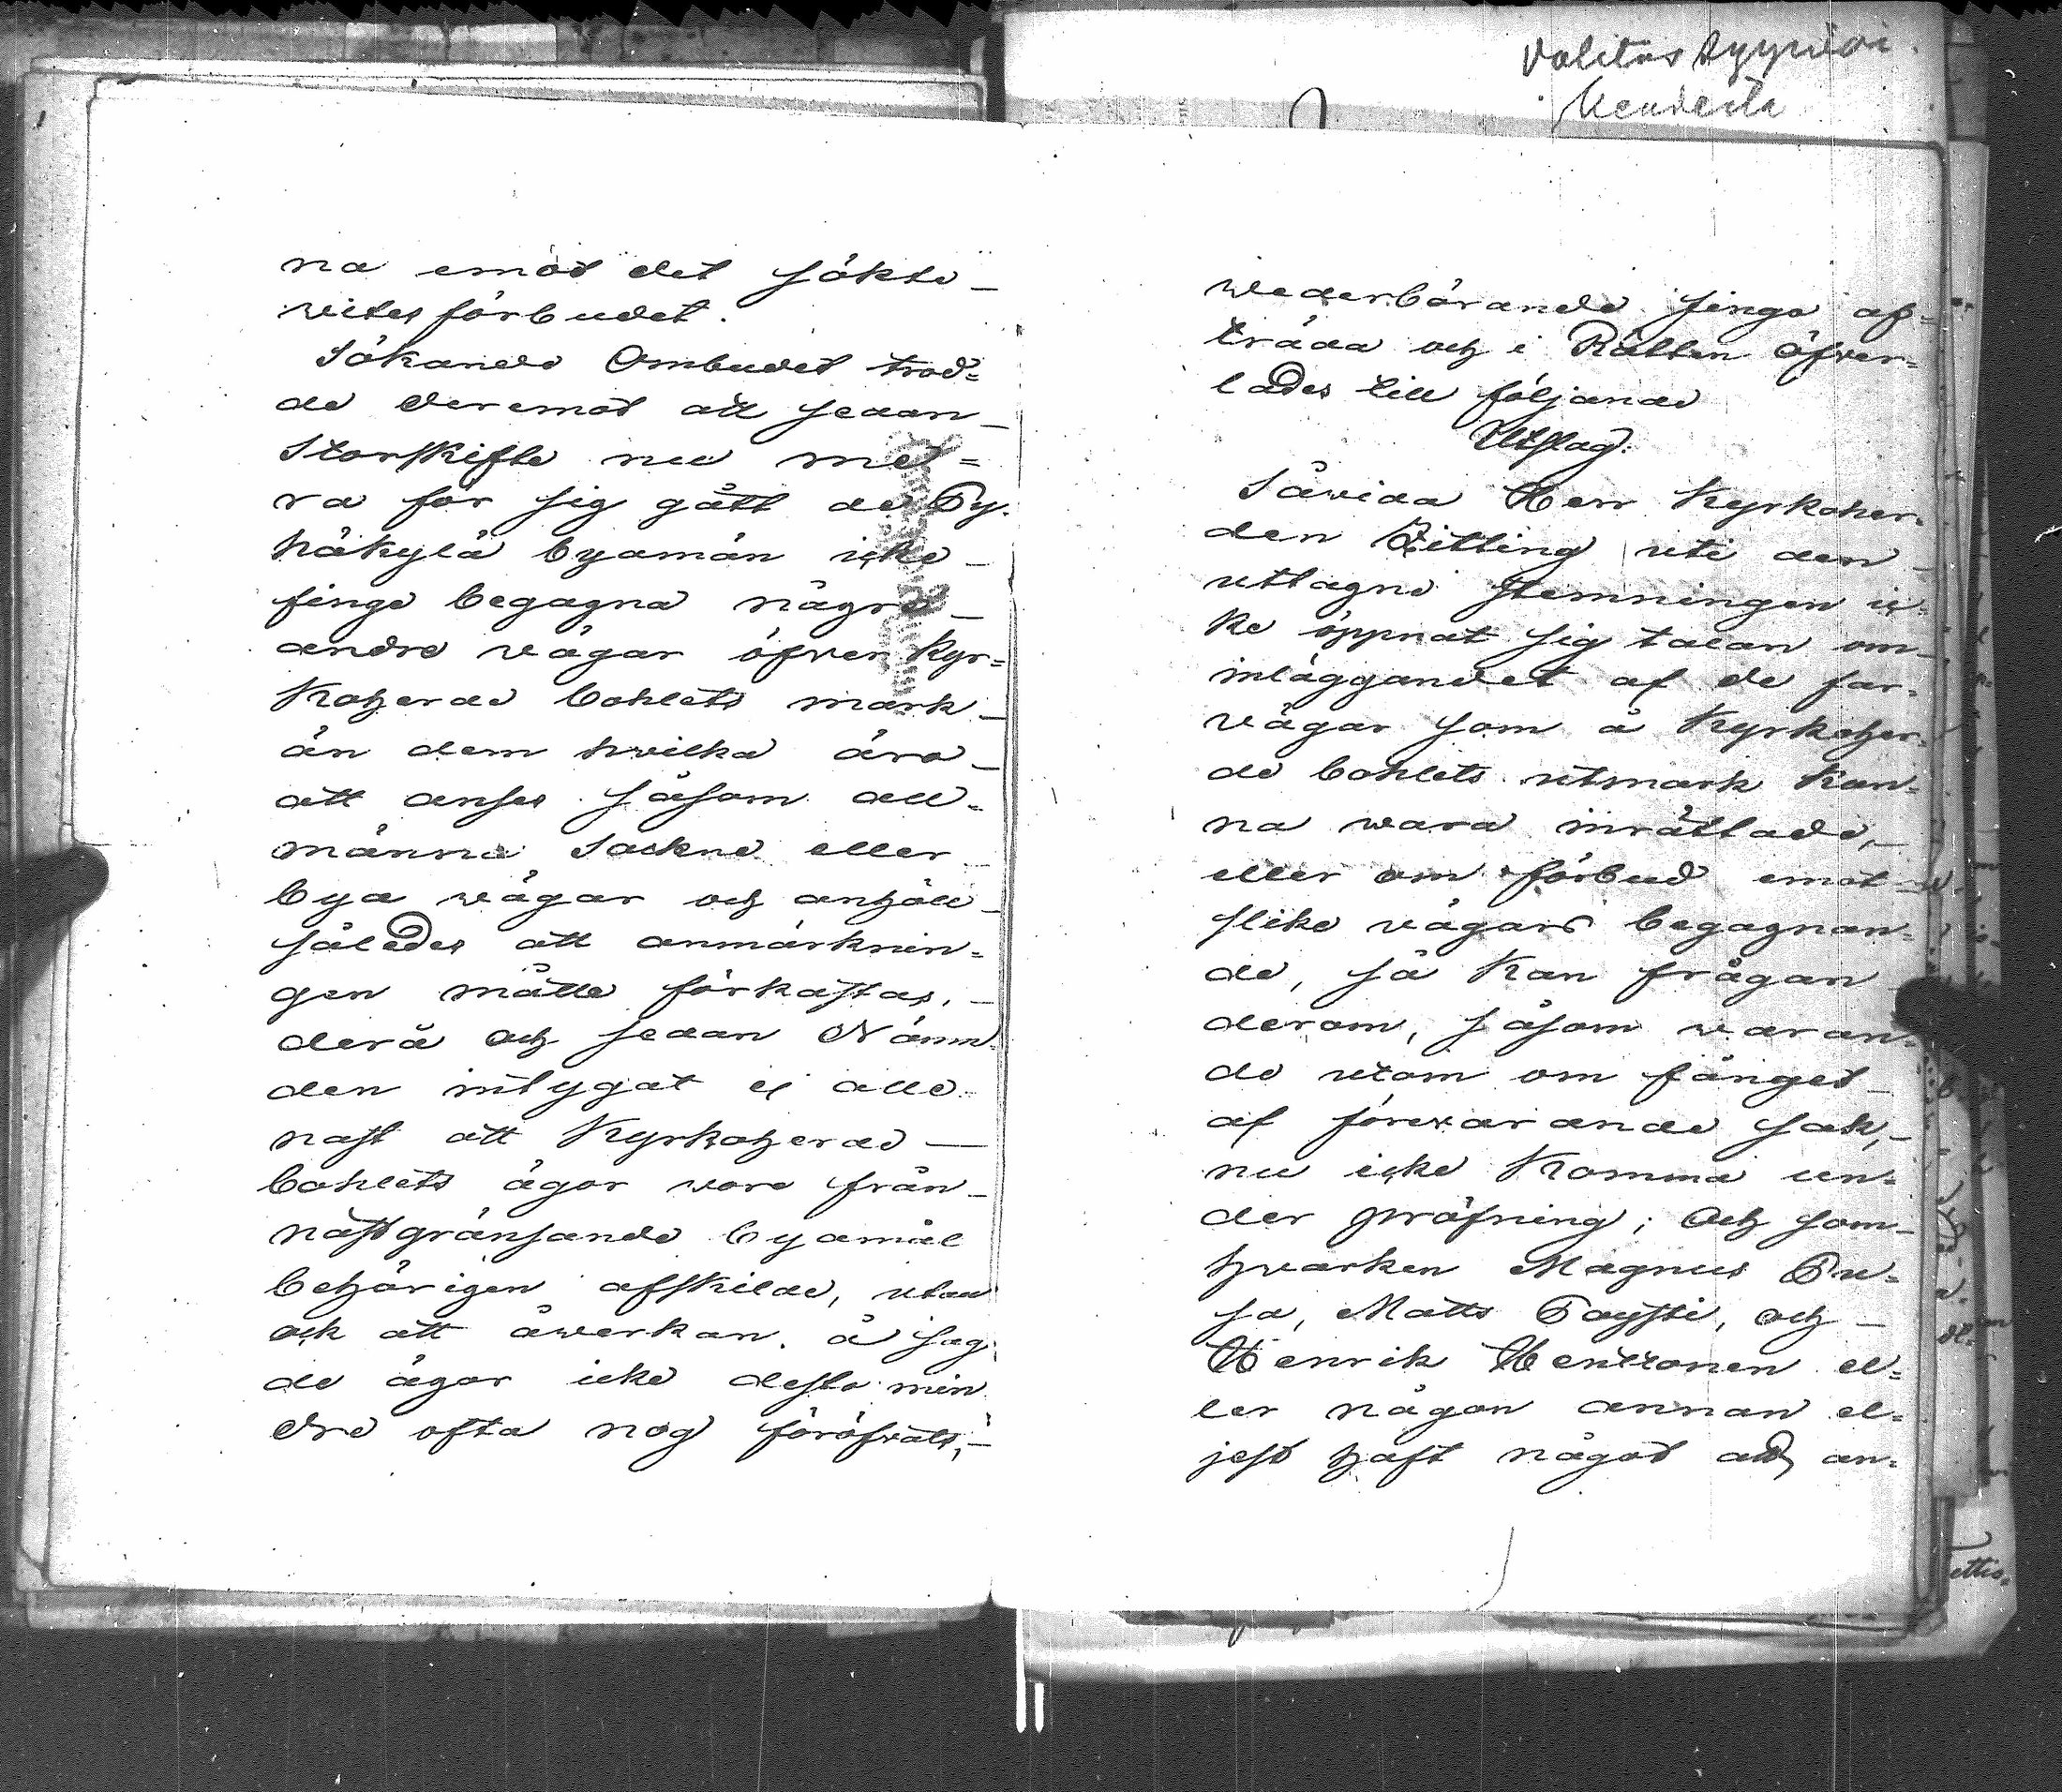 na emot det sökte
vitesförbudet.
Sökande Ombudet trod=
de deremot att sedan
Storskifte nu me=
ra för sig gått de Py-
häkylä byamän icke
finge begagna några
andra vägar öfver Kyr=
koherde bohlets mark
än dem hvilka äro
att anses såsom all=
männa Sockne eller
bya vägar och anhöll
således att anmärknin=
gen måtte förkastas,
derå och sedan Nämn
den intygat ej alle=
nast att Kyrkoherde
bohlets ägor vore från
nästgränsande byamål
behörigen afskilde, utan
ock att åwerkan å sag
de ägor icke desto min
dre ofta nog föröfvats,
wederbörande fingo af=
träda och i Rätten öfver=
lades till följande
Utslag:
Såvida Herr Kyrkoher=
den Zitting uti den
uttagne stemningen ic=
ke öppnat sig talan om
inläggandet af de far=
vägar som å Kyrkoher=
de bohlets utmark kun=
na wara inrättade,
eller om förbud emot
slike vägars begagnan=
de, så kan frågan
derom, såsom waran=
de utom om fånget
af förevarande sak,
nu icke komma un=
der pröfning; och som
hvarken Magnus Pu=
sa, Matts Paysti, och
Henrik Henttonen el=
ler någon annan el=
jest haft något att an=